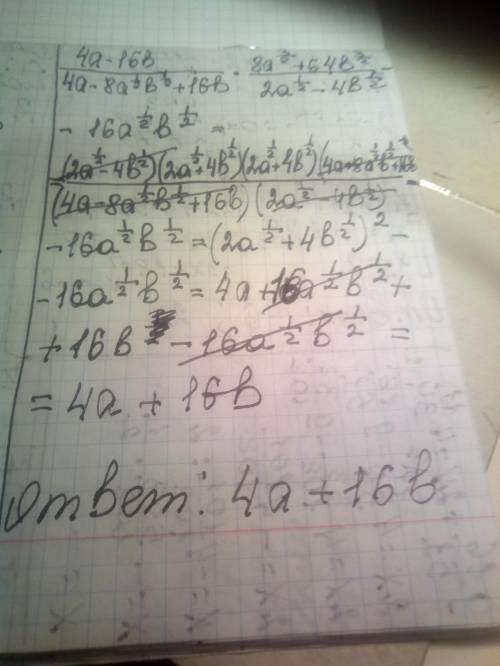 (4a-16b)/(4a-8a^{1/2}b^{1/2}+16b) · (8a^{3/2}+64b^{3/2})/(2a^{1/2}-4b^{1/2}) -
- 16a^{1/2}b^{1/2} =
= ((2a^{1/2}-4b^{1/2})(2a^{1/2}+4b^{1/2})(2a^{1/2}+4b^{1/2})(4a-8a^{1/2}b^{1/2}+16b))/((4a-8a^{1/2}b^{1/2}+16b)(2a^{1/2}-4b^{1/2})) -
-16a^{1/2}b^{1/2} = (2a^{1/2}+4b^{1/2})^2 -
-16a^{1/2}b^{1/2} = 4a+16a^{1/2}b^{1/2} +
+ 16b - 16a^{1/2}b^{1/2} =
= 4a + 16b
Ответ: 4a+16b